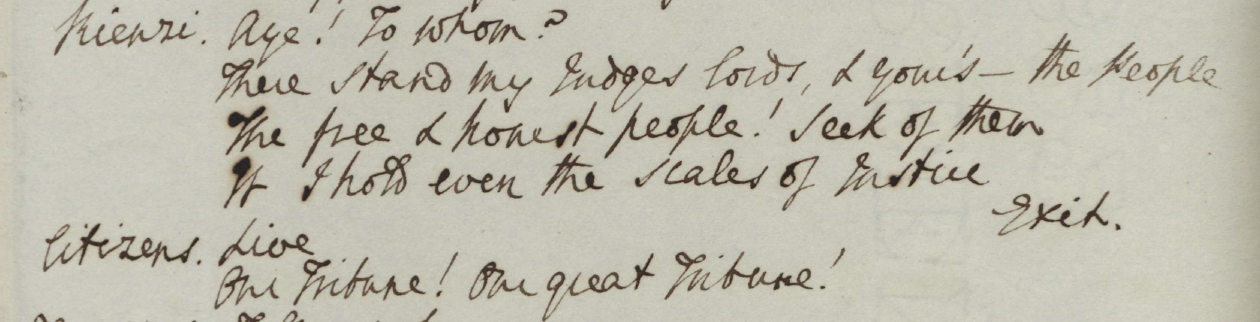 Rienzi. Aye! To whom?
There stand my Judges Lords, & your's — the People
The free & honest people! Seek of them
If I hold even the scales of Justice
Exit.
Citizens. Live
Our Tribune! Our great Tribune!